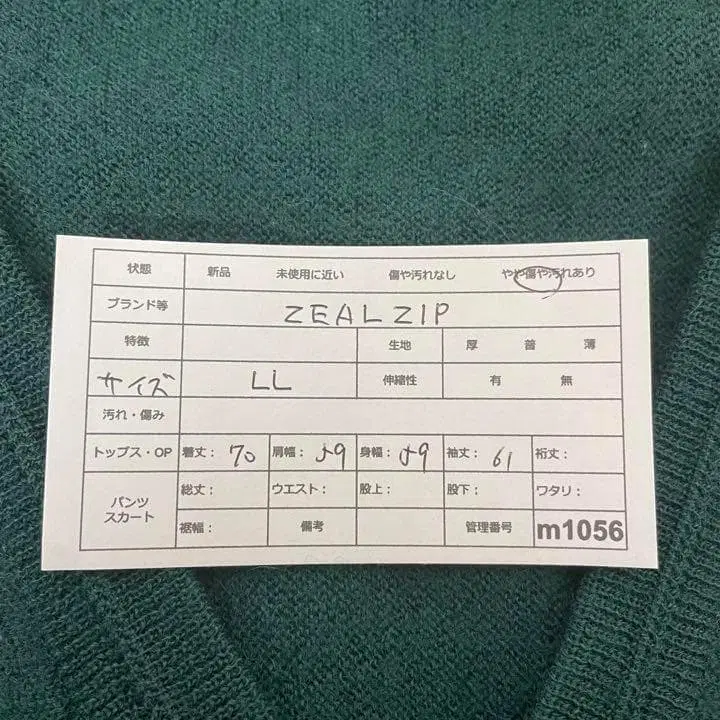 状態 新品 未使用に近い 傷や汚れなし やや傷や汚れあり
ブランド等 ZEALZIP
特徴 生地 厚 普 薄
サイズ LL 伸縮性 有 無
汚れ・傷み
トップス・OP 着丈: 70 肩幅: 59 身幅: 59 袖丈: 61 裄丈:
パンツ スカート 総丈: ウエスト: 股上: 股下: ワタリ:
裾幅: 備考 管理番号 m1056